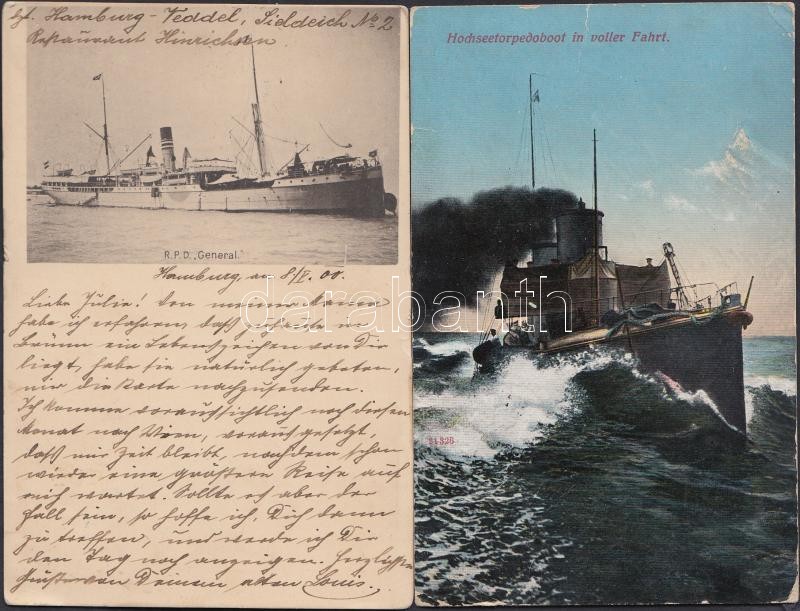 Hamburg-Veddel, Sieldeich No 2
Restaurant Hinrichsen
R.P.D. „General."
Hamburg, am 8/V. 00.
Liebe Julie! Von meiner
habe ich erfahren, daß
Brünn ein Lebenszeichen von Dir
liegt, habe sie natürlich gebeten,
mir die Karte nachzusenden.
Ich komme voraussichtlich noch diesen
Monat nach Wien, vorausgesetzt,
daß mir Zeit bleibt, nachdem schon
wieder eine größere Reise auf
mich wartet. Sollte es aber der
Fall sein, so hoffe ich, Dich dann
zu treffen, und werde ich Dir
den Tag noch anzeigen. Herzlichste
Grüße von Deinem alten Louis.
Hochseetorpedoboot in voller Fahrt.
21328
darabanth